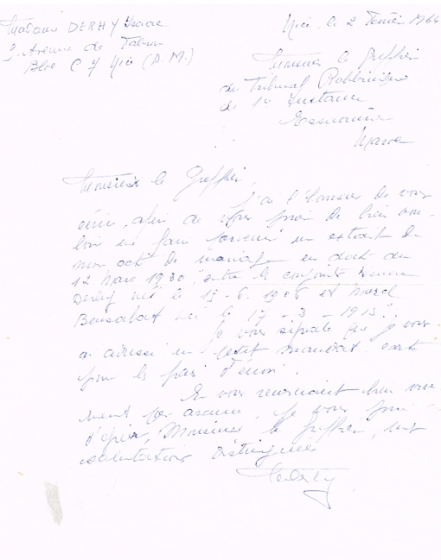 Madame DERHY Isaac
2, Avenue de
Bloc C 7 Nice (A.M.)
Nice, le 2 Février 1964
Monsieur le Greffier
du Tribunal Rabbinique
de 1e Instance
Maroc
Monsieur le Greffier,
J'ai l'honneur de vous
afin de vous prier de bien vou-
loir me faire parvenir un extrait de
mon acte de mariage en date du
12 Mars 1930, entre le conjoint
Derhy né le 15-6-1906 et
née le 17-3-1913.
Je vous signale que je vous
ai adressé un petit mandat
pour les frais d'envoi.
En vous remerciant bien vive-
ment par avance, je vous prie
d'agréer, Monsieur le Greffier, mes
salutations distinguées